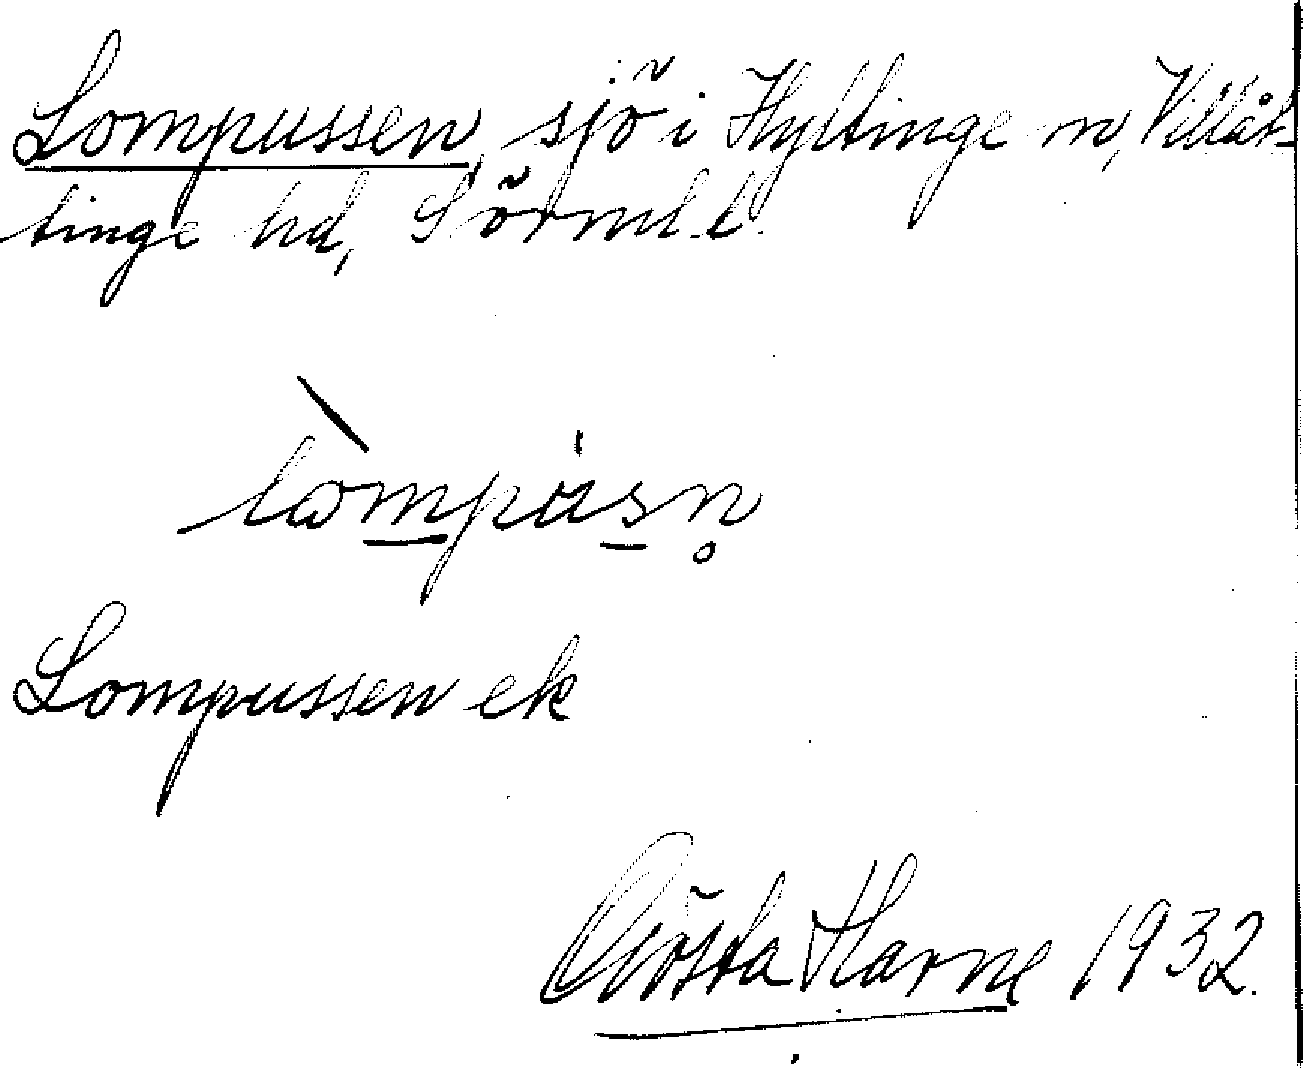 Lompussen, sjö i Hyltinge sn, Villåt-
tinge hd, Sörml. l.
lòmpusn̥
Lompussen ek
Gösta Harne 1932.